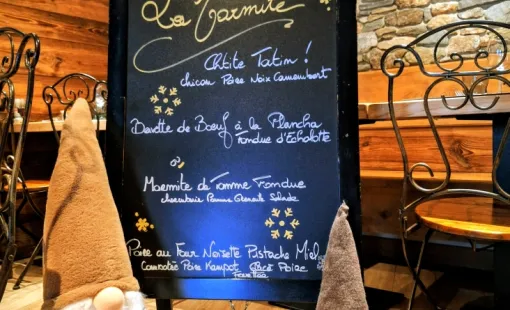 La Marmite
Chtite Tatin !
chicon Poire Noix Camembert
Bavette de Boeuf à la Plancha
Fondue d'Echalotte
Marmite de Tomme Fondue
charcuterie Pomme Grenaille Salade
Poire au Four Noisette Pistache Miel
Compotée Poire Kampot Glace Poire